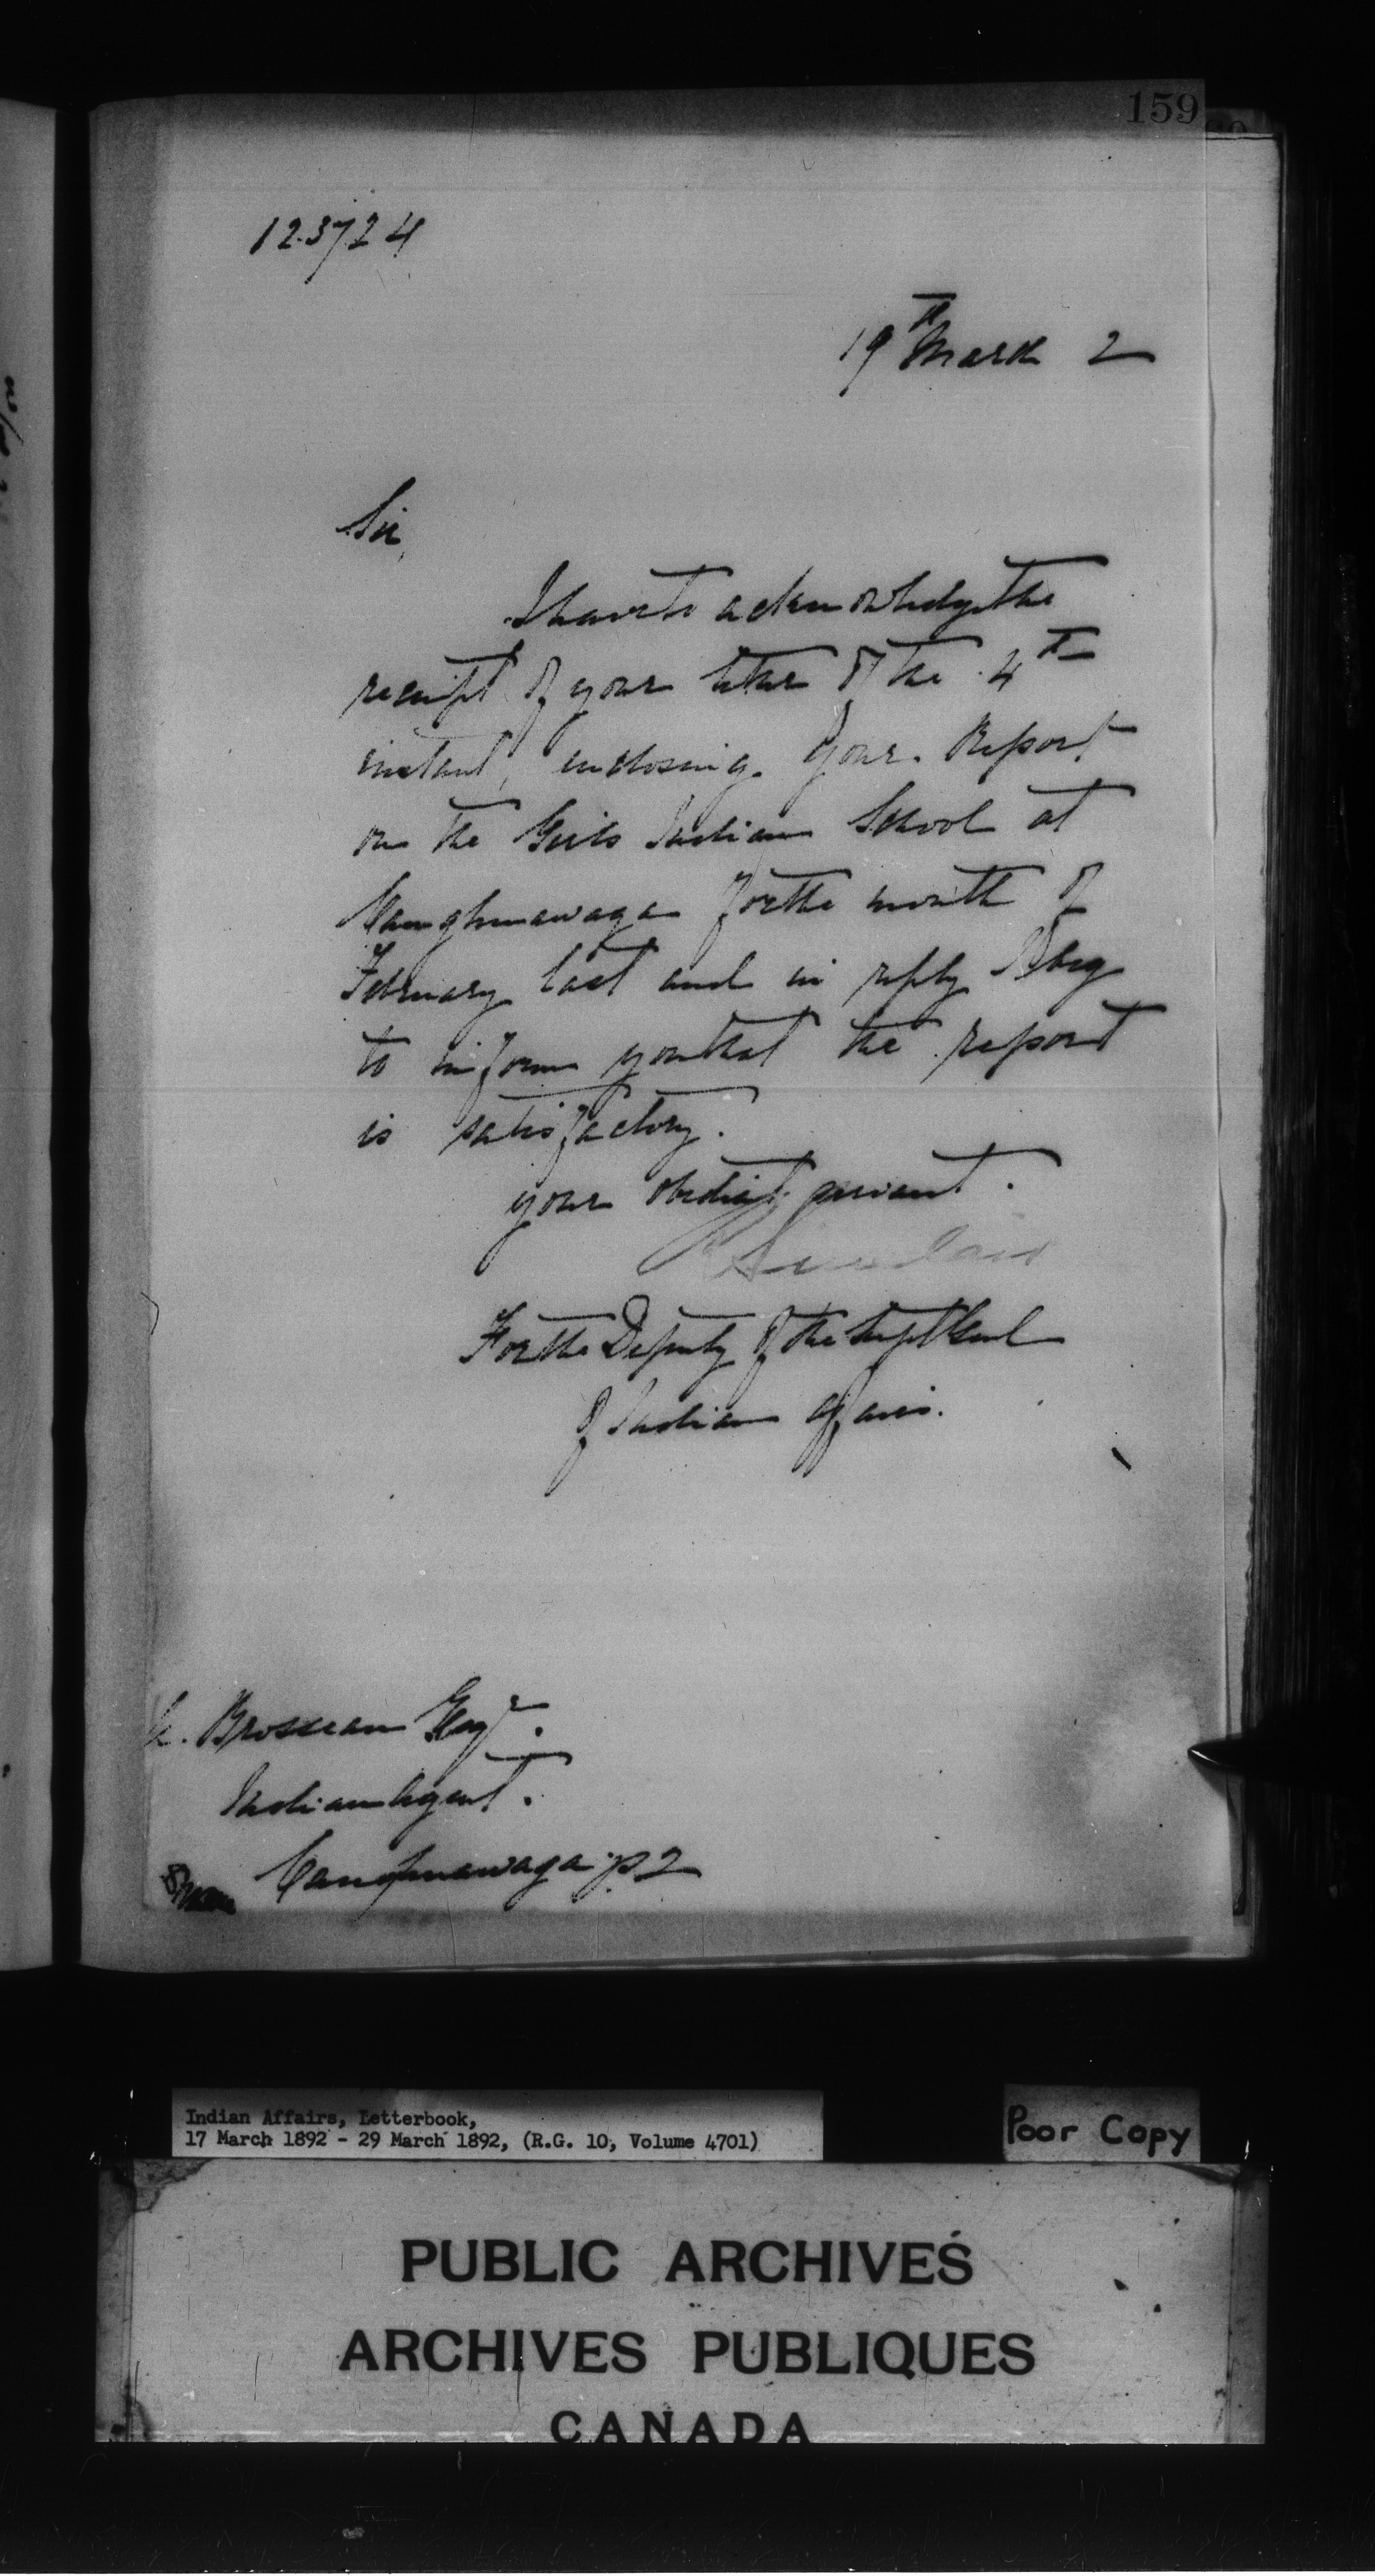 159
123724
19th March 2
Sir,
I have to acknowledge the
receipt of your letter of the 4th
instant, enclosing your Report
on the Girls Indian School at
Caughnawaga for the month of
February last and in reply I beg
to inform you that the report
is satisfactory.
your obedient servant.
Sinclair
For the Deputy of the Supt Genl
of Indian Affairs.
Brosseau Esqr.
Indian Agent.
Caughnawaga P2
Indian Affairs, Letterbook,
17 March 1892 - 29 March 1892, (R.G. 10, Volume 4701)
Poor Copy
PUBLIC ARCHIVES
ARCHIVES PUBLIQUES
CANADA